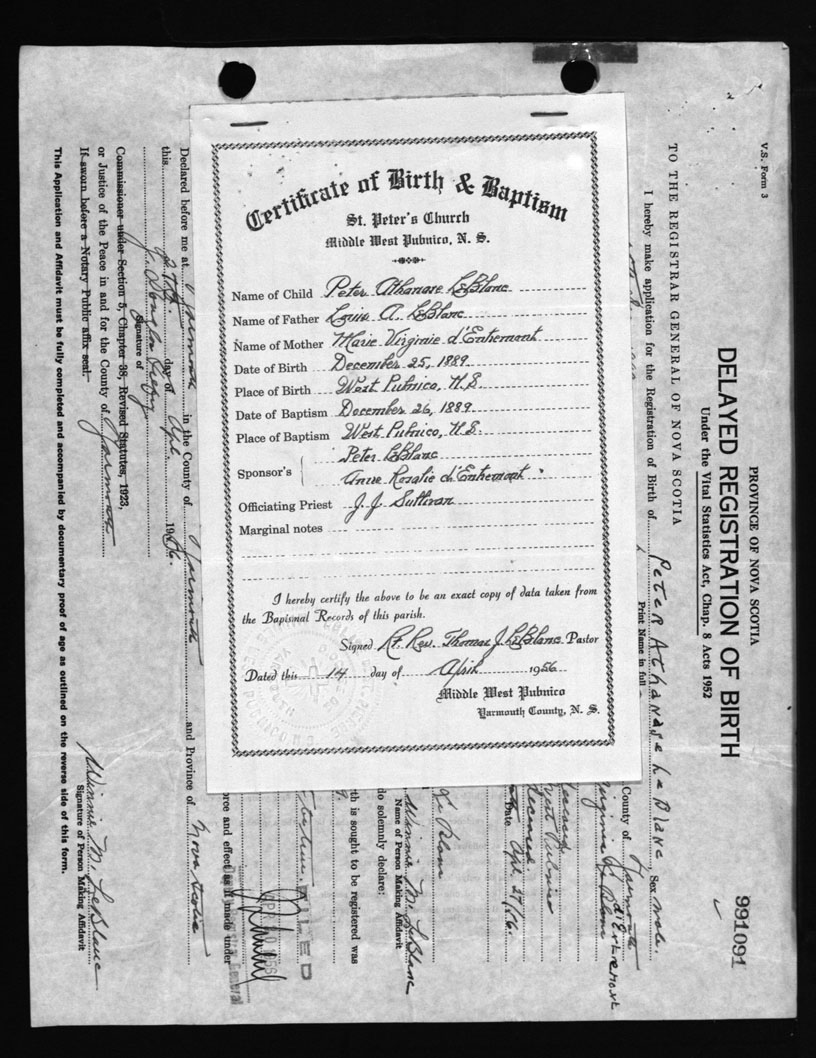 Certificate of Birth & Baptism
St. Peter's Church
Middle West Pubnico, N. S.
Name of Child Peter Athanase LeBlanc
Name of Father Louis A. LeBlanc
Name of Mother Marie Virginie d'Entremont
Date of Birth December 25, 1889
Place of Birth West Pubnico, N.S.
Date of Baptism December 26, 1889
Place of Baptism West Pubnico, N.S.
Sponsor's Peter LeBlanc
Anne Rosalie d'Entremont
Officiating Priest J. J. Sullivan
Marginal notes
I hereby certify the above to be an exact copy of data taken from
the Bapismal Records of this parish.
Signed Rt. Rev. Thomas J. LeBlanc Pastor
Dated this 14 day of April 1956
Middle West Pubnico
Yarmouth County, N. S.
V.S. Form 3
PROVINCE OF NOVA SCOTIA
DELAYED REGISTRATION OF BIRTH
Under the Vital Statistics Act, Chap. 8 Acts 1952
991091
TO THE REGISTRAR GENERAL OF NOVA SCOTIA
I hereby make application for the Registration of Birth of Peter Athanase Le Blanc Sex male.
Print Name in full
County of Yarmouth
d'Entremont
Virginie Le Blanc
West Pubnico
deceased.
Date Apl. 27/56.
Le Blanc
Winnie M. LeBlanc
Name of Person Making Affidavit
do solemnly declare:
rth is sought to be registered was
FILED
APR 30 1956
General
orce and effect as if made under
Declared before me at Yarmouth in the County of Yarmouth and Province of Nova Scotia
this 27th day of Apl. 1956.
Signature of
Commissioner under Section 5, Chapter 38, Revised Statutes, 1923,
or Justice of the Peace in and for the County of Yarmouth
If sworn before a Notary Public affix seal
Winnie M. LeBlanc
Signature of Person Making Affidavit
This Application and Affidavit must be fully completed and accompanied by documentary proof of age as outlined on the reverse side of this form.